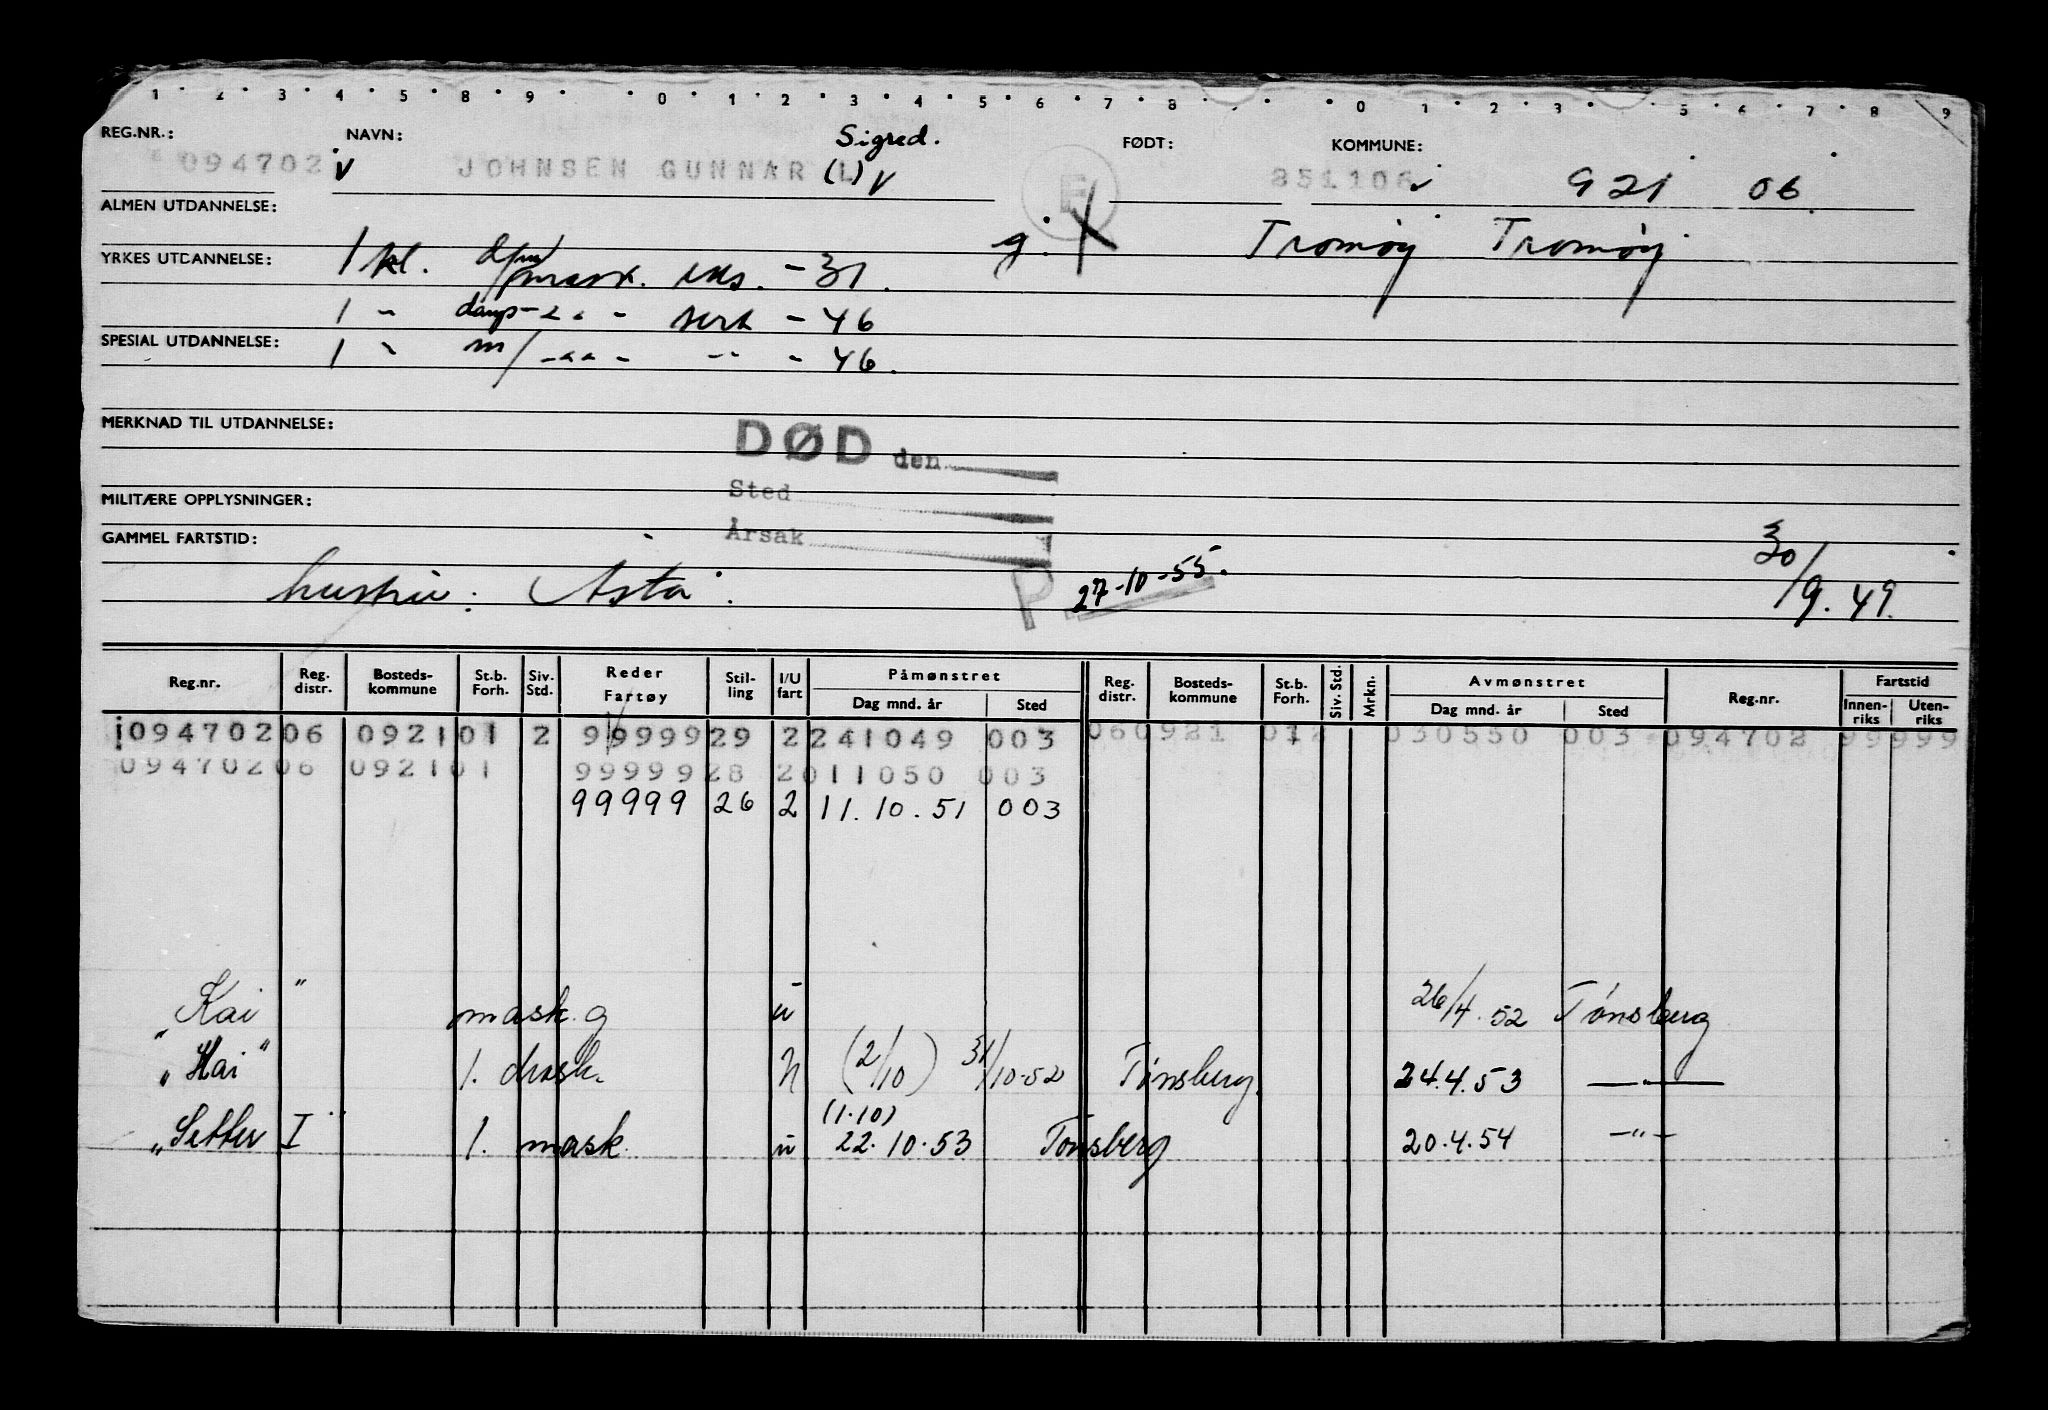 1 2 3 4 5 8 9 0 1 2 3 4 5 6 7 8 0 1 2 3 5 6 7 8 9
REG.NR.: NAVN: Sigred. FØDT: KOMMUNE:
094702 v JOHNSEN GUNNAR (L) v E 851106 921 06
ALMEN UTDANNELSE:
g. X Tromøy Tromøy
YRKES UTDANNELSE: 1 kl. mask. eks. - 31.
1 " damp - " - sert - 46
SPESIAL UTDANNELSE: 1 " m/ - " " - - " - - 46.
MERKNAD TIL UTDANNELSE:
DØD den
Sted
MILITÆRE OPPLYSNINGER:
Årsak
GAMMEL FARTSTID:
hustru: Asta. P 27-10-55. 30/9. 49.
Reg.nr. Reg. distr. Bosteds-kommune St.b. Forh. Siv. Std. Reder Fartøy Stil-ling I/U fart Påmønstret Dag mnd. år Sted Reg. distr. Bosteds-kommune St.b. Forh. Siv. Std. Mrkn. Avmønstret Dag mnd. år Sted Reg.nr. Fartstid Innen-riks Uten-riks
094702 06 0921 01 2 99999 29 2 241049 003 06 0921 01 2 030550 003 094702 99999
094702 06 0921 01 99999 28 2 011050 003
99999 26 2 11.10.51 003
"Kai" mask.g u 26/4.52 Tønsberg
"Kai" 1. mask. u (2/10) 31/10-52 Tønsberg. 24.4.53 —"—
(1.10)
"Setter I" 1. mask. u 22.10.53 Tønsberg 20.4.54 —"—